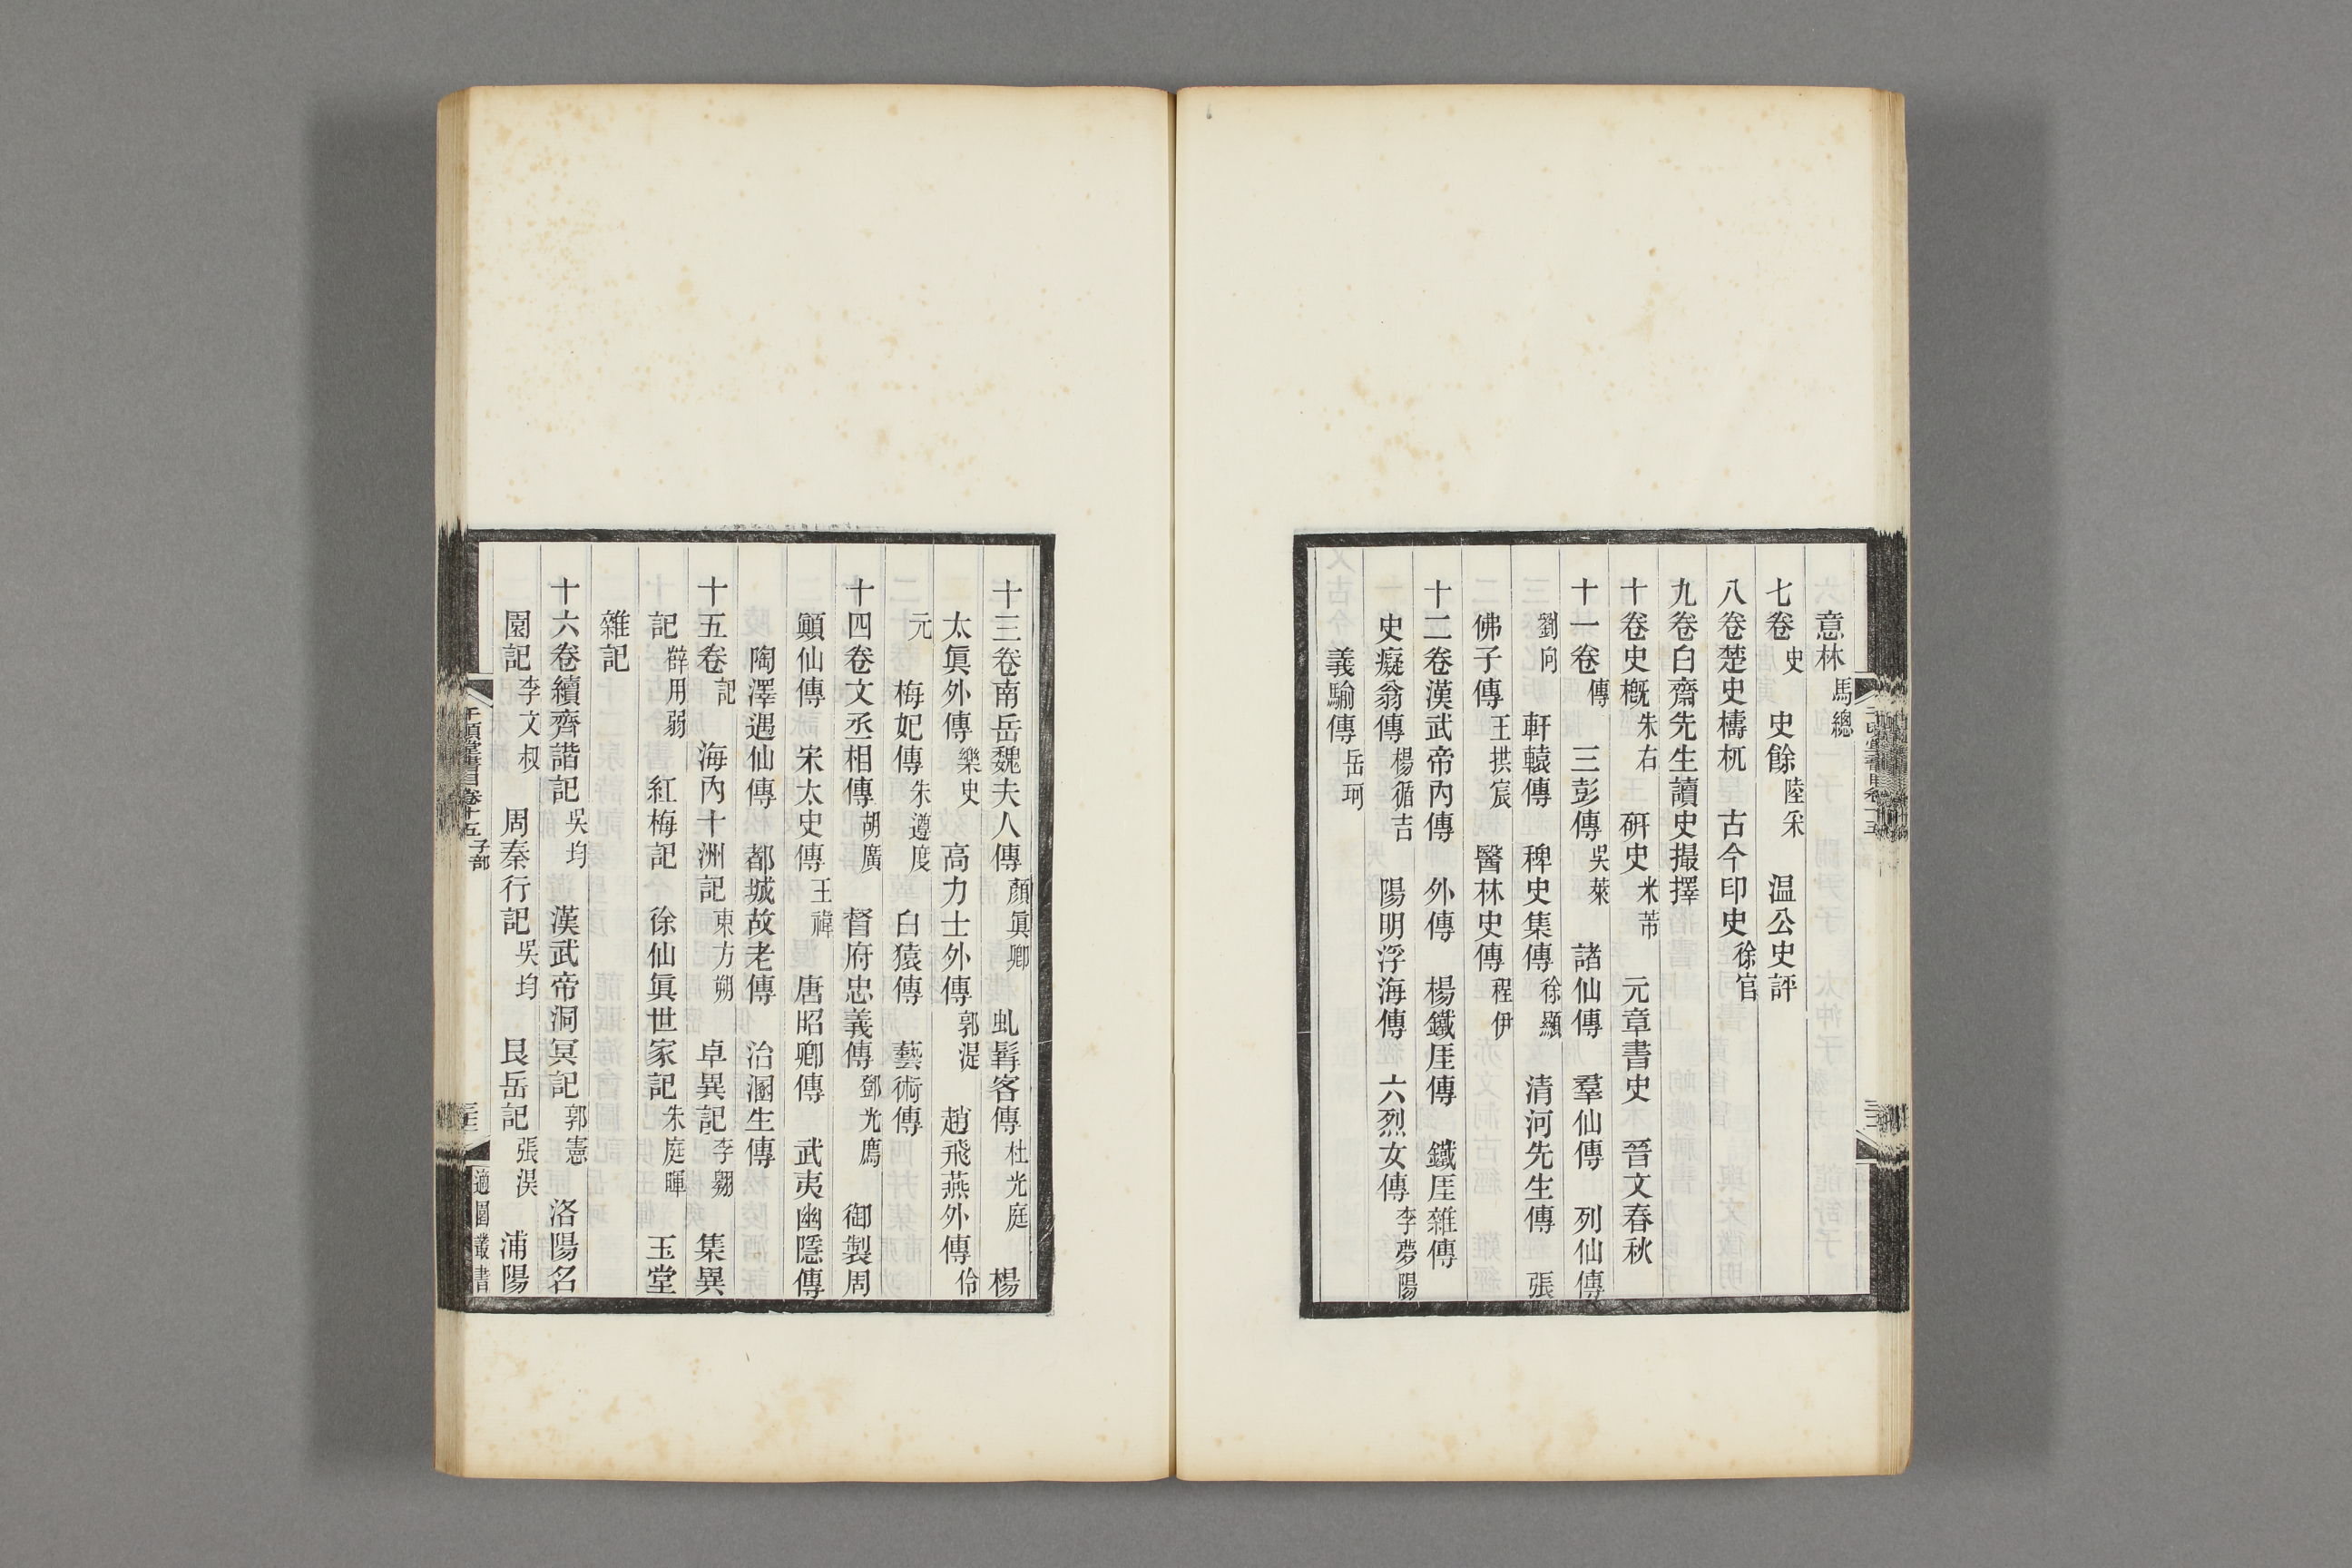 意林馬總
七卷史　史餘陸采　温公史評
八卷楚史檮杌　古今印史徐官
九卷白齋先生讀史撮擇
十卷史概朱右　硏史米芾　元章書史　晉文春秋
十一卷傳　三彭傳吳萊　諸仙傳　羣仙傳　列仙傳
劉向　軒轅傳　稗史集傳徐顯　清河先生傳　張
佛子傳王拱宸　醫林史傳程伊
十二卷漢武帝內傳　外傳　楊鐵厓傳　鐵厓雜傳
史癡翁傳楊循吉　陽明浮海傳　六烈女傳李夢陽
義騟傳岳珂
十三卷南岳魏夫人傳顏眞卿　虬髯客傳杜光庭　楊
太眞外傳樂史　高力士外傳郭湜　趙飛燕外傳伶
元　梅妃傳朱遵度　白猿傳　藝術傳
十四卷文丞相傳胡廣　督府忠義傳鄧光鷹　御製周
顚仙傳　宋太史傳王禕　唐昭卿傳　武夷幽隱傳
陶澤遇仙傳　都城故老傳　治溷生傳
十五卷記　海內十洲記東方朔　卓異記李翱　集異
記薛用弱　紅梅記　徐仙眞世家記朱庭暉　玉堂
雜記
十六卷續齊諧記吳均　漢武帝洞冥記郭憲　洛陽名
園記李文叔　周秦行記吳均　艮岳記張淏　浦陽
千頃堂書目卷十五子部
適園叢書